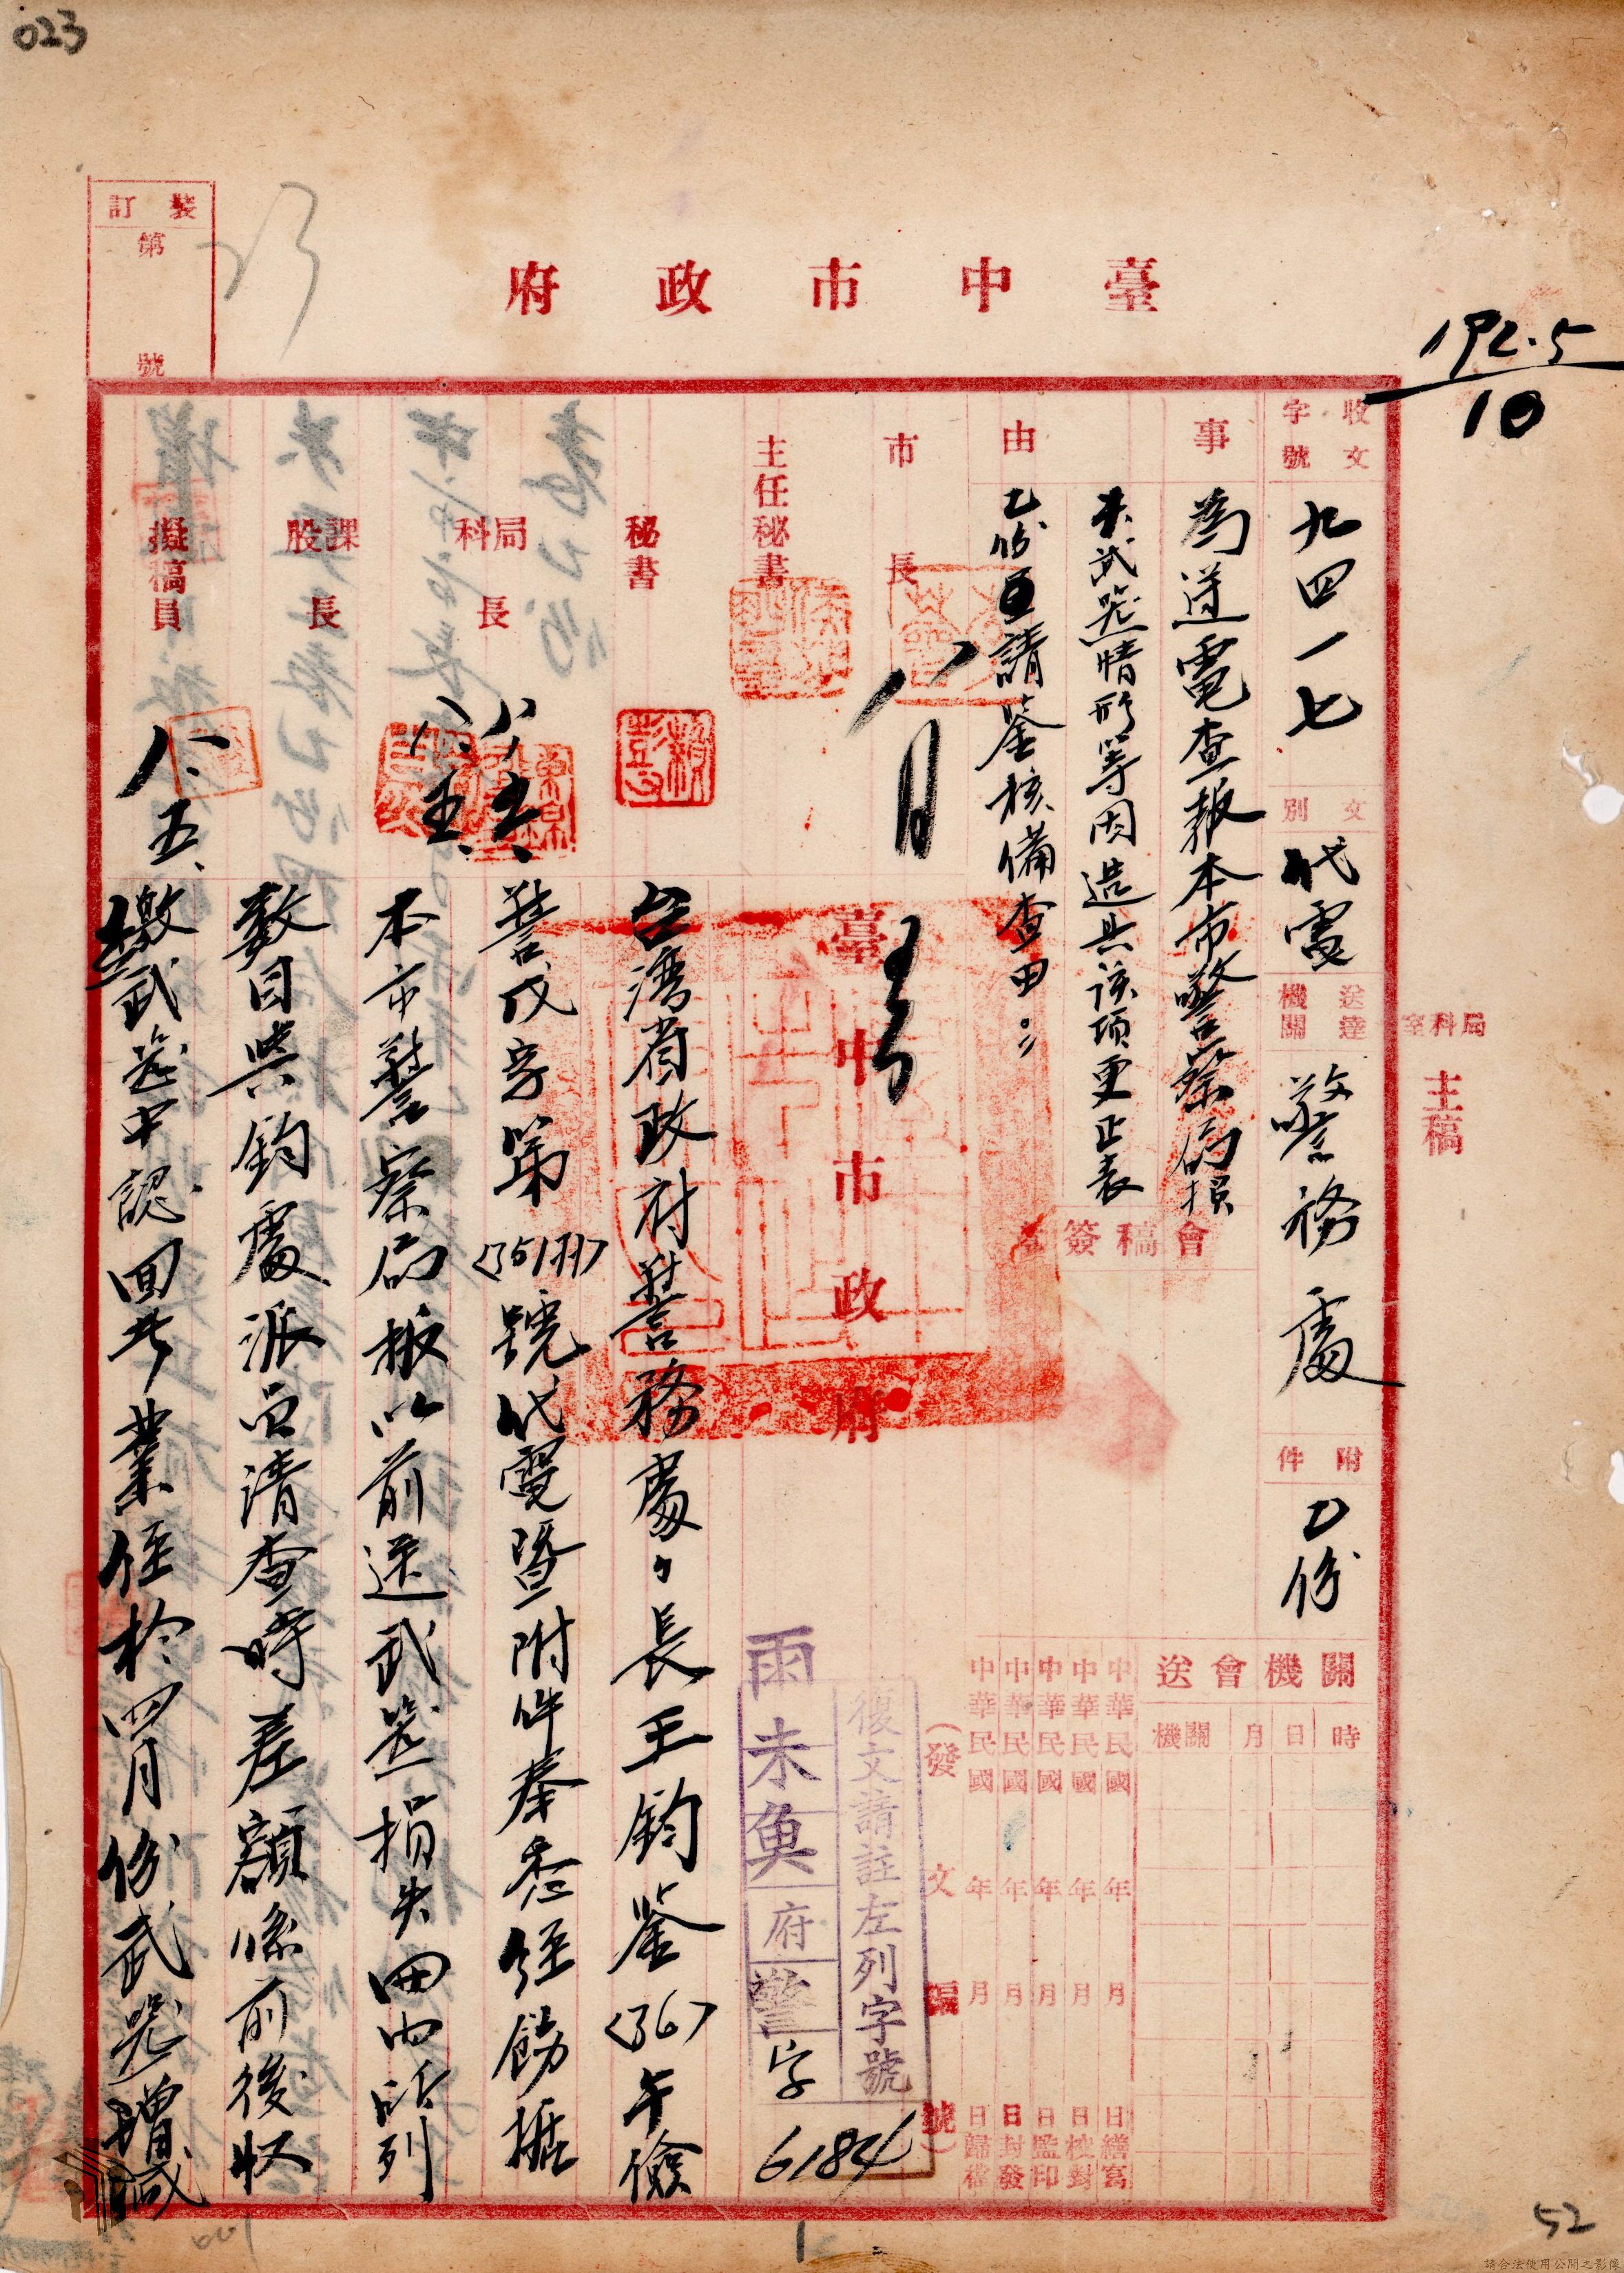 023
裝訂
第
號
23
臺中市政府
192.5
10
收文
字號
九四一七
文別
代電
送達機關
警務處
附件
乙份
局科室
主稿
事由
為遵電查報本市警察局損
失武器情形等因造具該項更正表
乙份函請鑒核備查由
會稿簽
市長
八月
主任秘書
秘書
局科長
八八
課股長
擬稿員
八、五、
關機會送
時日月關機
中華民國 年 月 日繕寫
中華民國 年 月 日校對
中華民國 年 月 日監印
中華民國 年 月 日封發
中華民國 年 月 日歸檔
(發文編號)
臺中市政府
復文請註左列字號
雨未魚府警字
6184
台灣省政府警務處々長王鈞鑒〈36〉午儉
警戌字第〈35177〉號代電暨附件奉悉經飭據
本市警察局報以前送武器損失冊內所列
數目與鈞處派員清查時差額係前後收
繳武器中認回者業經於四月份武器增減
52
請合法使用公開之影像